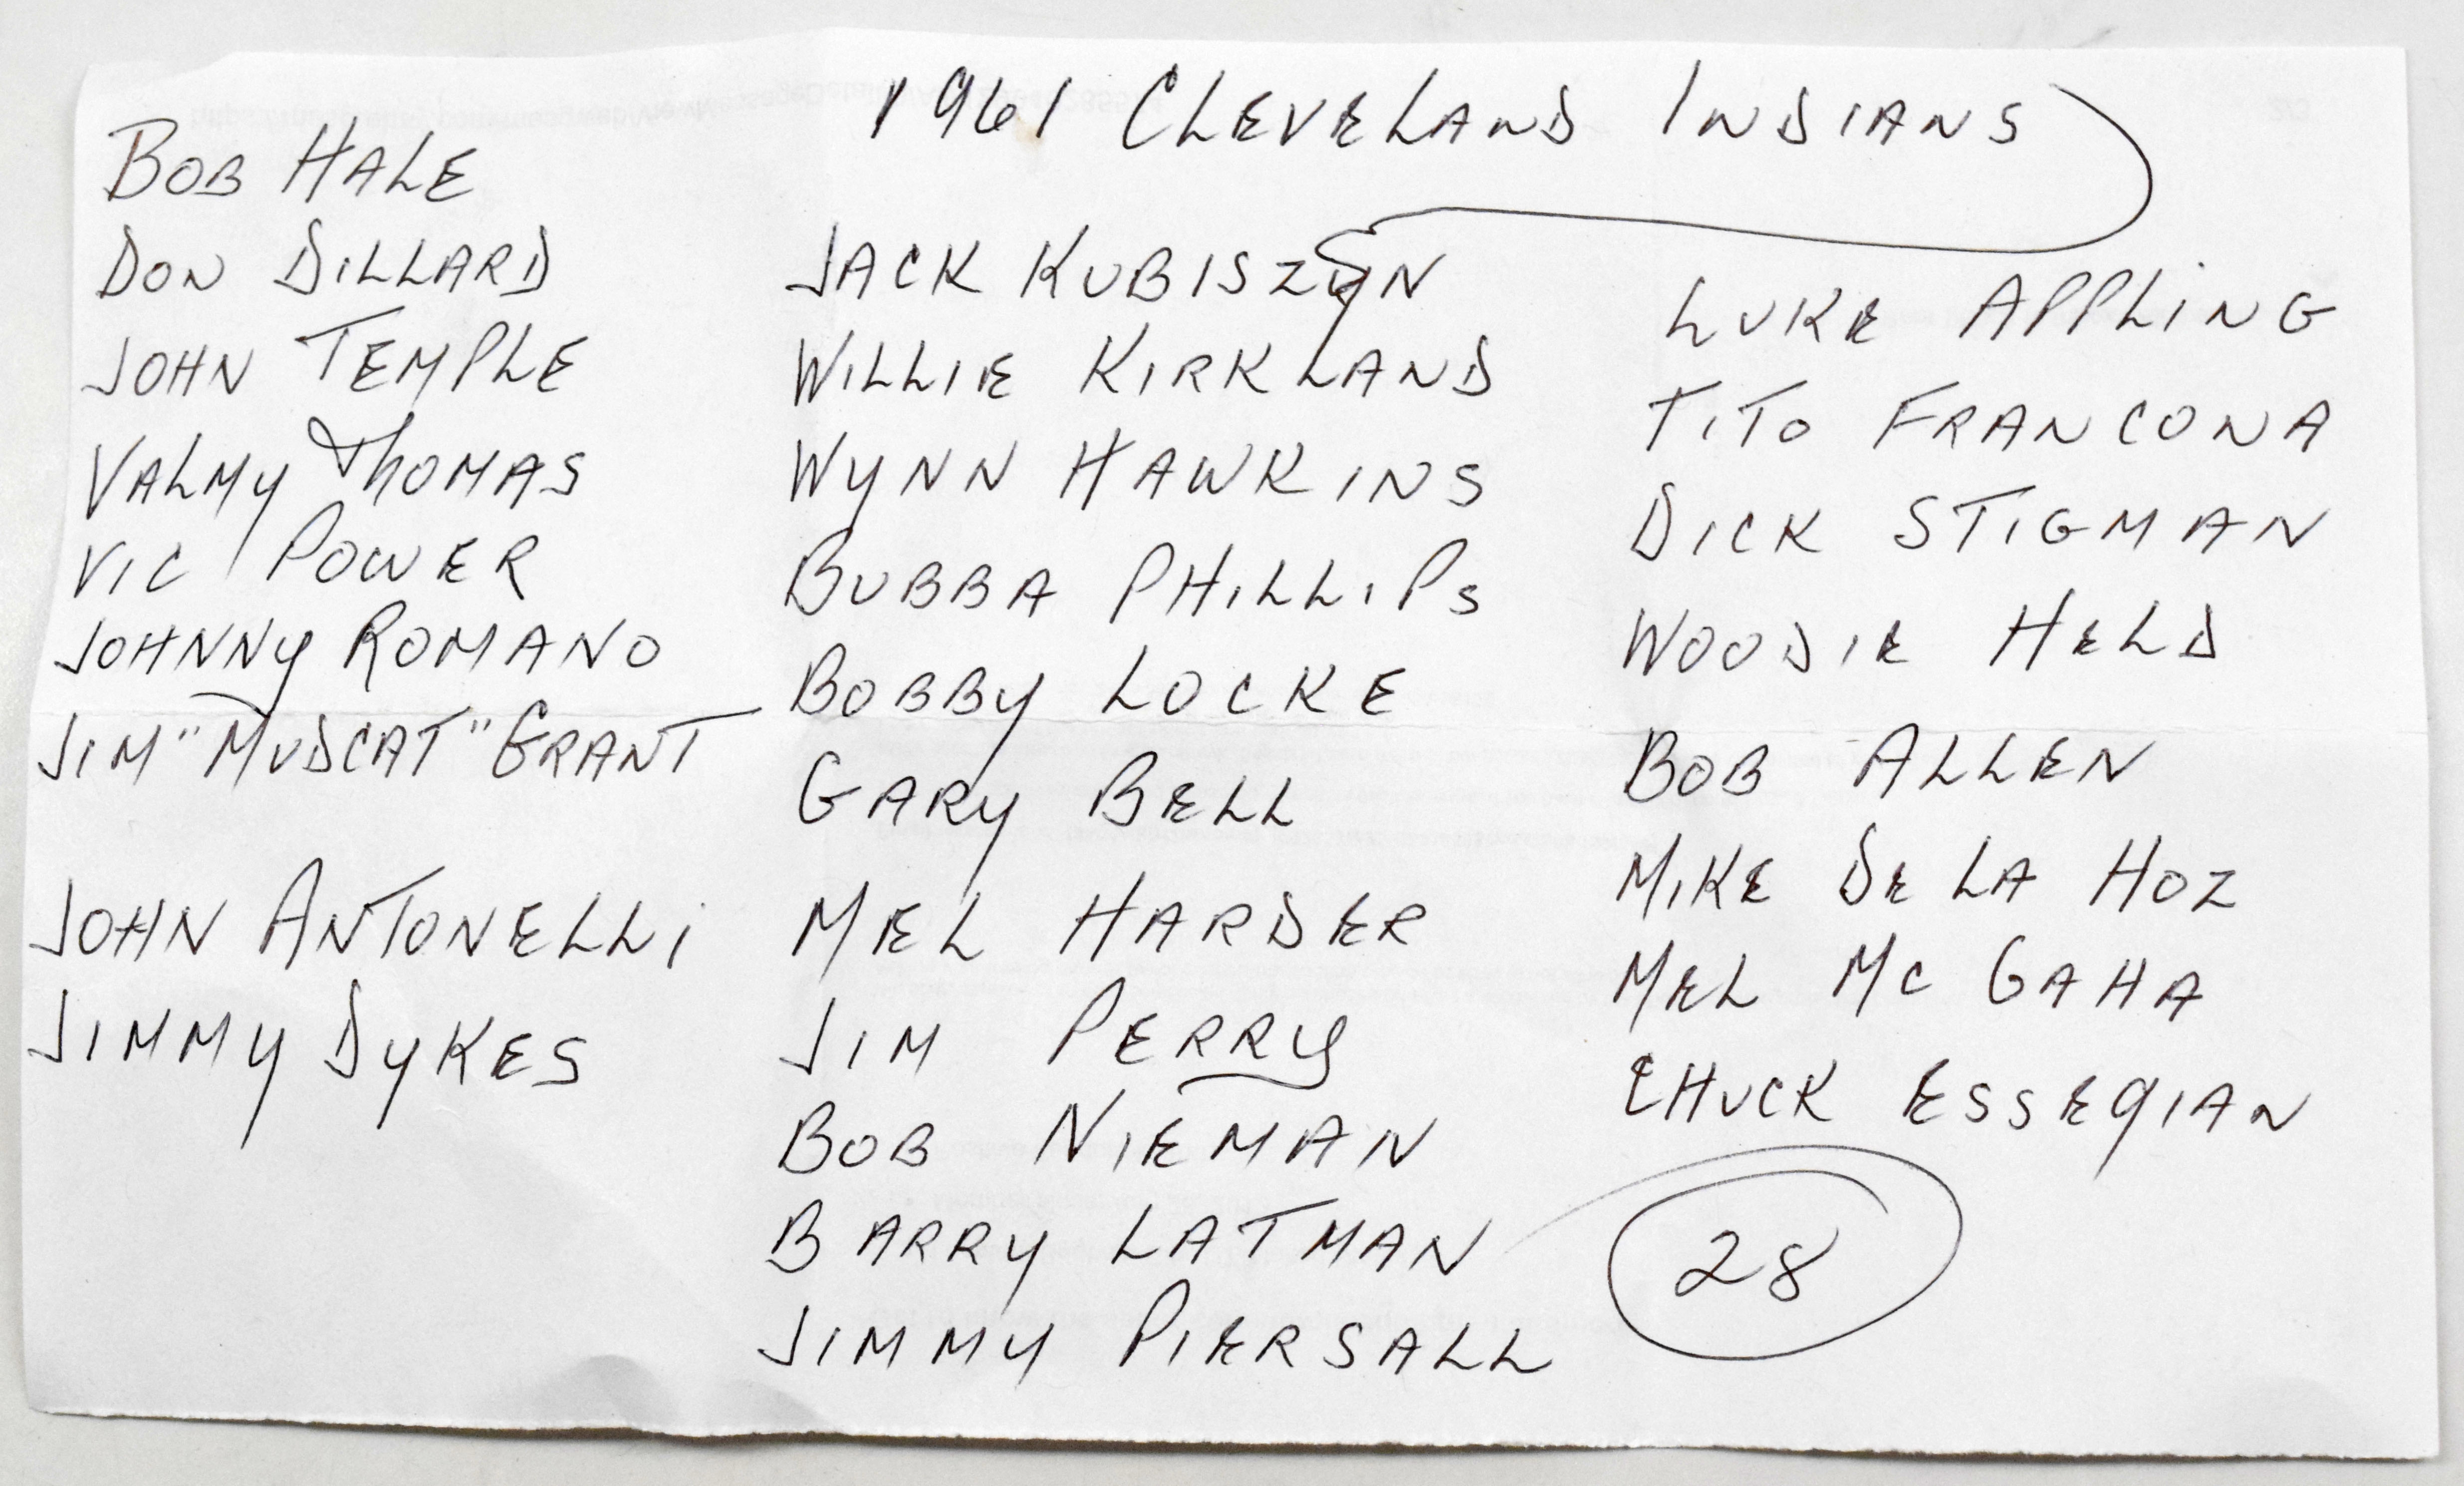 1961 CLEVELAND INDIANS
BOB HALE
DON DILLARD
JOHN TEMPLE
VALMY THOMAS
VIC POWER
JOHNNY ROMANO
JIM "MUDCAT" GRANT
JOHN ANTONELLI
JIMMY DYKES
JACK KUBISZYN
WILLIE KIRKLAND
WYNN HAWKINS
BUBBA PHILLIPS
BOBBY LOCKE
GARY BELL
MEL HARDER
JIM PERRY
BOB NIEMAN
BARRY LATMAN
JIMMY PIERSALL
LUKE APPLING
TITO FRANCONA
DICK STIGMAN
WOODIE HELD
BOB ALLEN
MIKE DE LA HOZ
MEL MC GAHA
CHUCK ESSEGIAN
28